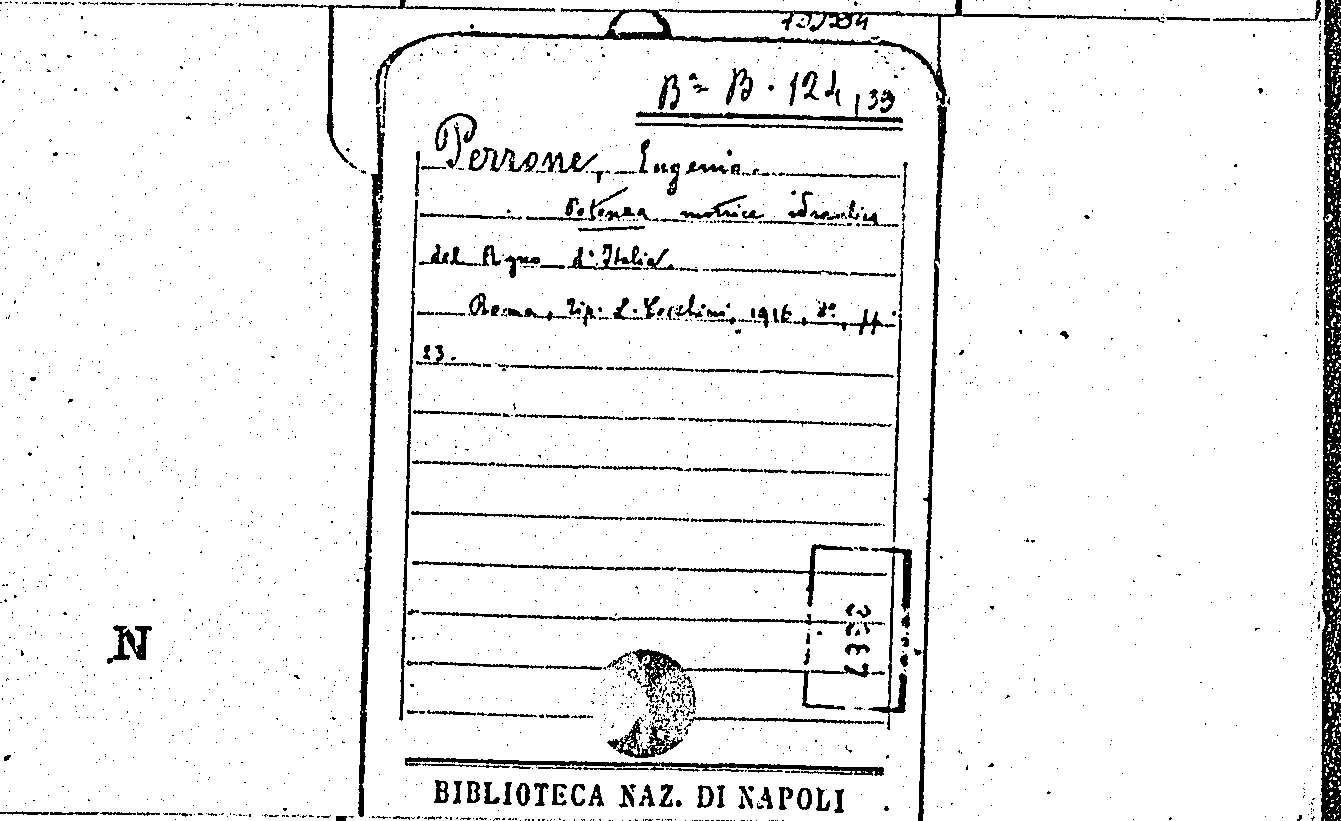 Bª B. 124, 33
Perrone, Eugenio.
Potenza motrice idraulica
del Regno d'Italia.
Roma, Tip. L. Cecchini, 1916, 8º, pp.
23.
N
BIBLIOTECA NAZ. DI NAPOLI